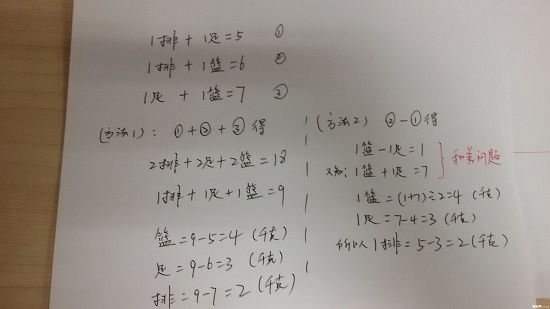 1排 + 1足 = 5 ①
1排 + 1篮 = 6 ②
1足 + 1篮 = 7 ③
(方法1): ①+②+③ 得
2排+2足+2篮 = 18
1排 + 1足 + 1篮 = 9
篮 = 9-5 = 4 (千克)
足 = 9-6 = 3 (千克)
排 = 9-7 = 2 (千克)
(方法2) ②-① 得
1篮 - 1足 = 1
又知: 1篮 + 1足 = 7
和差问题
1篮 = (1+7)÷2 = 4 (千克)
1足 = 7-4 = 3 (千克)
所以 1排 = 5-3 = 2 (千克)